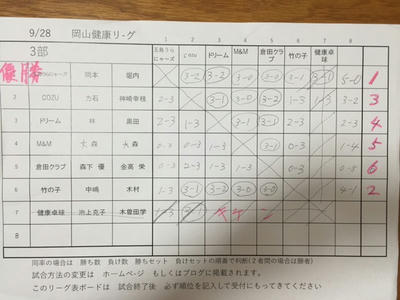 9/28 岡山健康リーグ
3部
1 2 3 4 5 6 7 8
五島うらにャーズ COZU ドリーム M&M 倉田クラブ 竹の子 健康卓球
優勝 岡本 堀内 3-2 3-2 3-0 3-0 3-1 3-1 5-0 1
2 COZU 力石 神崎幸枝 2-3 3-1 3-0 3-2 1-3 1-3 3-2 3
3 ドリーム 林 黒田 2-3 1-3 3-1 3-1 1-3 2-3 4
4 M&M 大森 大森 0-3 0-3 1-3 3-1 0-3 1-4 5
5 倉田クラブ 森下 優 金高 栄 0-3 2-3 1-3 1-3 0-3 0-5 6
6 竹の子 中嶋 木村 1-3 3-1 3-1 3-0 3-0 4-1 2
7 健康卓球 池上克子 木曽田学 1-3 3-1 キ ケ ン
8
同率の場合は 勝ち数 負け数 勝ちセット 負けセットの順番で判断(2者間の場合は勝者)
試合方法の変更は ホームページ もしくはブログに掲載されます。
このリーグ表ボードは 試合終了後 必ず順位を記入して受付にもってきてください